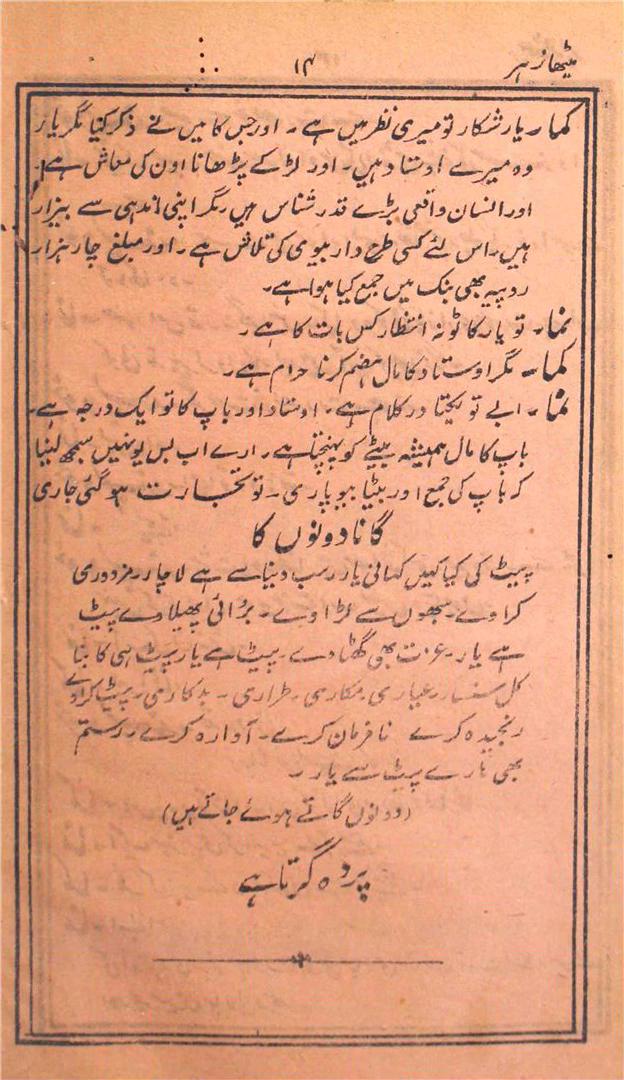 میٹھا زہر ۱۴
کما۔ یار شکار تو میری نظر میں ہے۔ اور جس کا میں نے ذکر کیا مگر یار
وہ میرے اوستاد ہیں۔ اور لڑکے پڑھانا اون کی معاش ہے۔
اور انسان واقعی بڑے قدر شناس ہیں مگر اپنی اندہی سے بیزار
ہیں۔ اس لئے کسی طرح دار بیوی کی تلاش ہے۔ اور مبلغ چار ہزار
روپیہ بھی بنک میں جمع کیا ہوا ہے۔
نما۔ تو یار کاٹو نہ انتظار کس بات کا ہے۔
کما۔ مگر اوستاد کا مال ہضم کرنا حرام ہے۔
نما۔ ابے تو یختا در کلام ہے۔ اوستاد اور باپ کا تو ایک درجہ ہے۔
باپ کا مال ہمیشہ بیٹے کو پہنچتا ہے۔ ارے اب بس یونہیں سمجھ لینا
کہ باپ کی جمع اور بیٹا بیوپاری۔ تو تجارت ہو گئی جاری
گانا دونوں کا
پیٹ کی کیا کہیں کہانی یار۔ سب دنیا سے ہے لاچار۔ مزدوری
کراوے۔ سبھوں سے لڑاوے۔ برائی پھیلاوے پیٹ
ہے یار۔ عزت بھی گھٹا دے۔ پیٹ ہے یار پیٹ ہی کا بنا
کل سنسار۔ عیاری۔ مکاری۔ طراری۔ بدکاری۔ پیٹ کراوے
رنجیدہ کرے نافرمان کرے۔ آوارہ کرے۔ رستم
بھی ہارے پیٹ سے یار۔
(دونوں گاتے ہوئے جاتے ہیں)
پردہ گرتا ہے